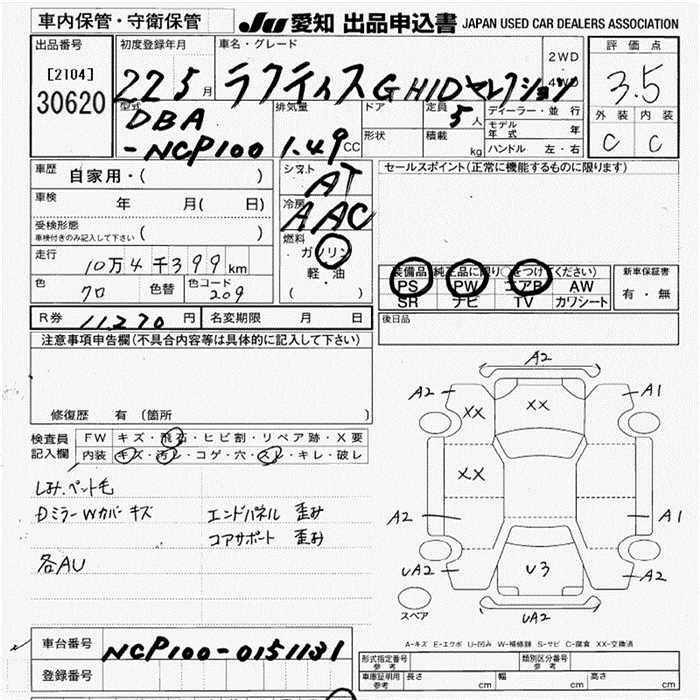 車内保管・守衛保管
JU 愛知 出品申込書 JAPAN USED CAR DEALERS ASSOCIATION
出品番号
[2104]
30620
初度登録年月
22 5月
車名・グレード
ラクティス G HIDセレクション
2WD
・
4WD
評価点
3.5
外装 内装
C C
型式
DBA
-NCP100
排気量
1.49 CC
ドア
形状
定員
5人
積載
kg
ディーラー・並行
モデル年式 年
ハンドル 左・右
車歴
自家用・( )
車検 年 月( 日)
受検形態
車検付きのみ記入して下さい ( )
走行
10万4千399km
色 クロ 色替 色コード 209
R券 11,270円 名変期限 月 日
シフト
AT
冷房
AAC
燃料
ガソリン
軽・油
( )
セールスポイント(正常に機能するものに限ります)
装備品(純正品に限り○をつけてください)
PS PW エアB AW
SR ナビ TV カワシート
新車保証書
有・無
後日品
注意事項申告欄(不具合内容等は具体的に記入して下さい)
修復歴 有(箇所 )
検査員
記入欄
FW キズ・飛石・ヒビ割・リペア跡・X要
内装 キズ・汚レ・コゲ・穴・スレ・キレ・破レ
しみ、ペット毛
Dミラー Wカバー キズ エンドパネル 歪み
コアサポート 歪み
各AU
A2
A2 XX XX A1
XX
A2 A1
UA2 U3 A2
UA2
スペア
A-キズ E-エクボ U-凹み W-補修跡 S-サビ C-腐食 XX-交換済
車台番号 NCP100-0151131
登録番号
形式指定番号
参考
類別区分番号
参考
車庫証明用
参考
長さ cm 幅 cm 高さ cm